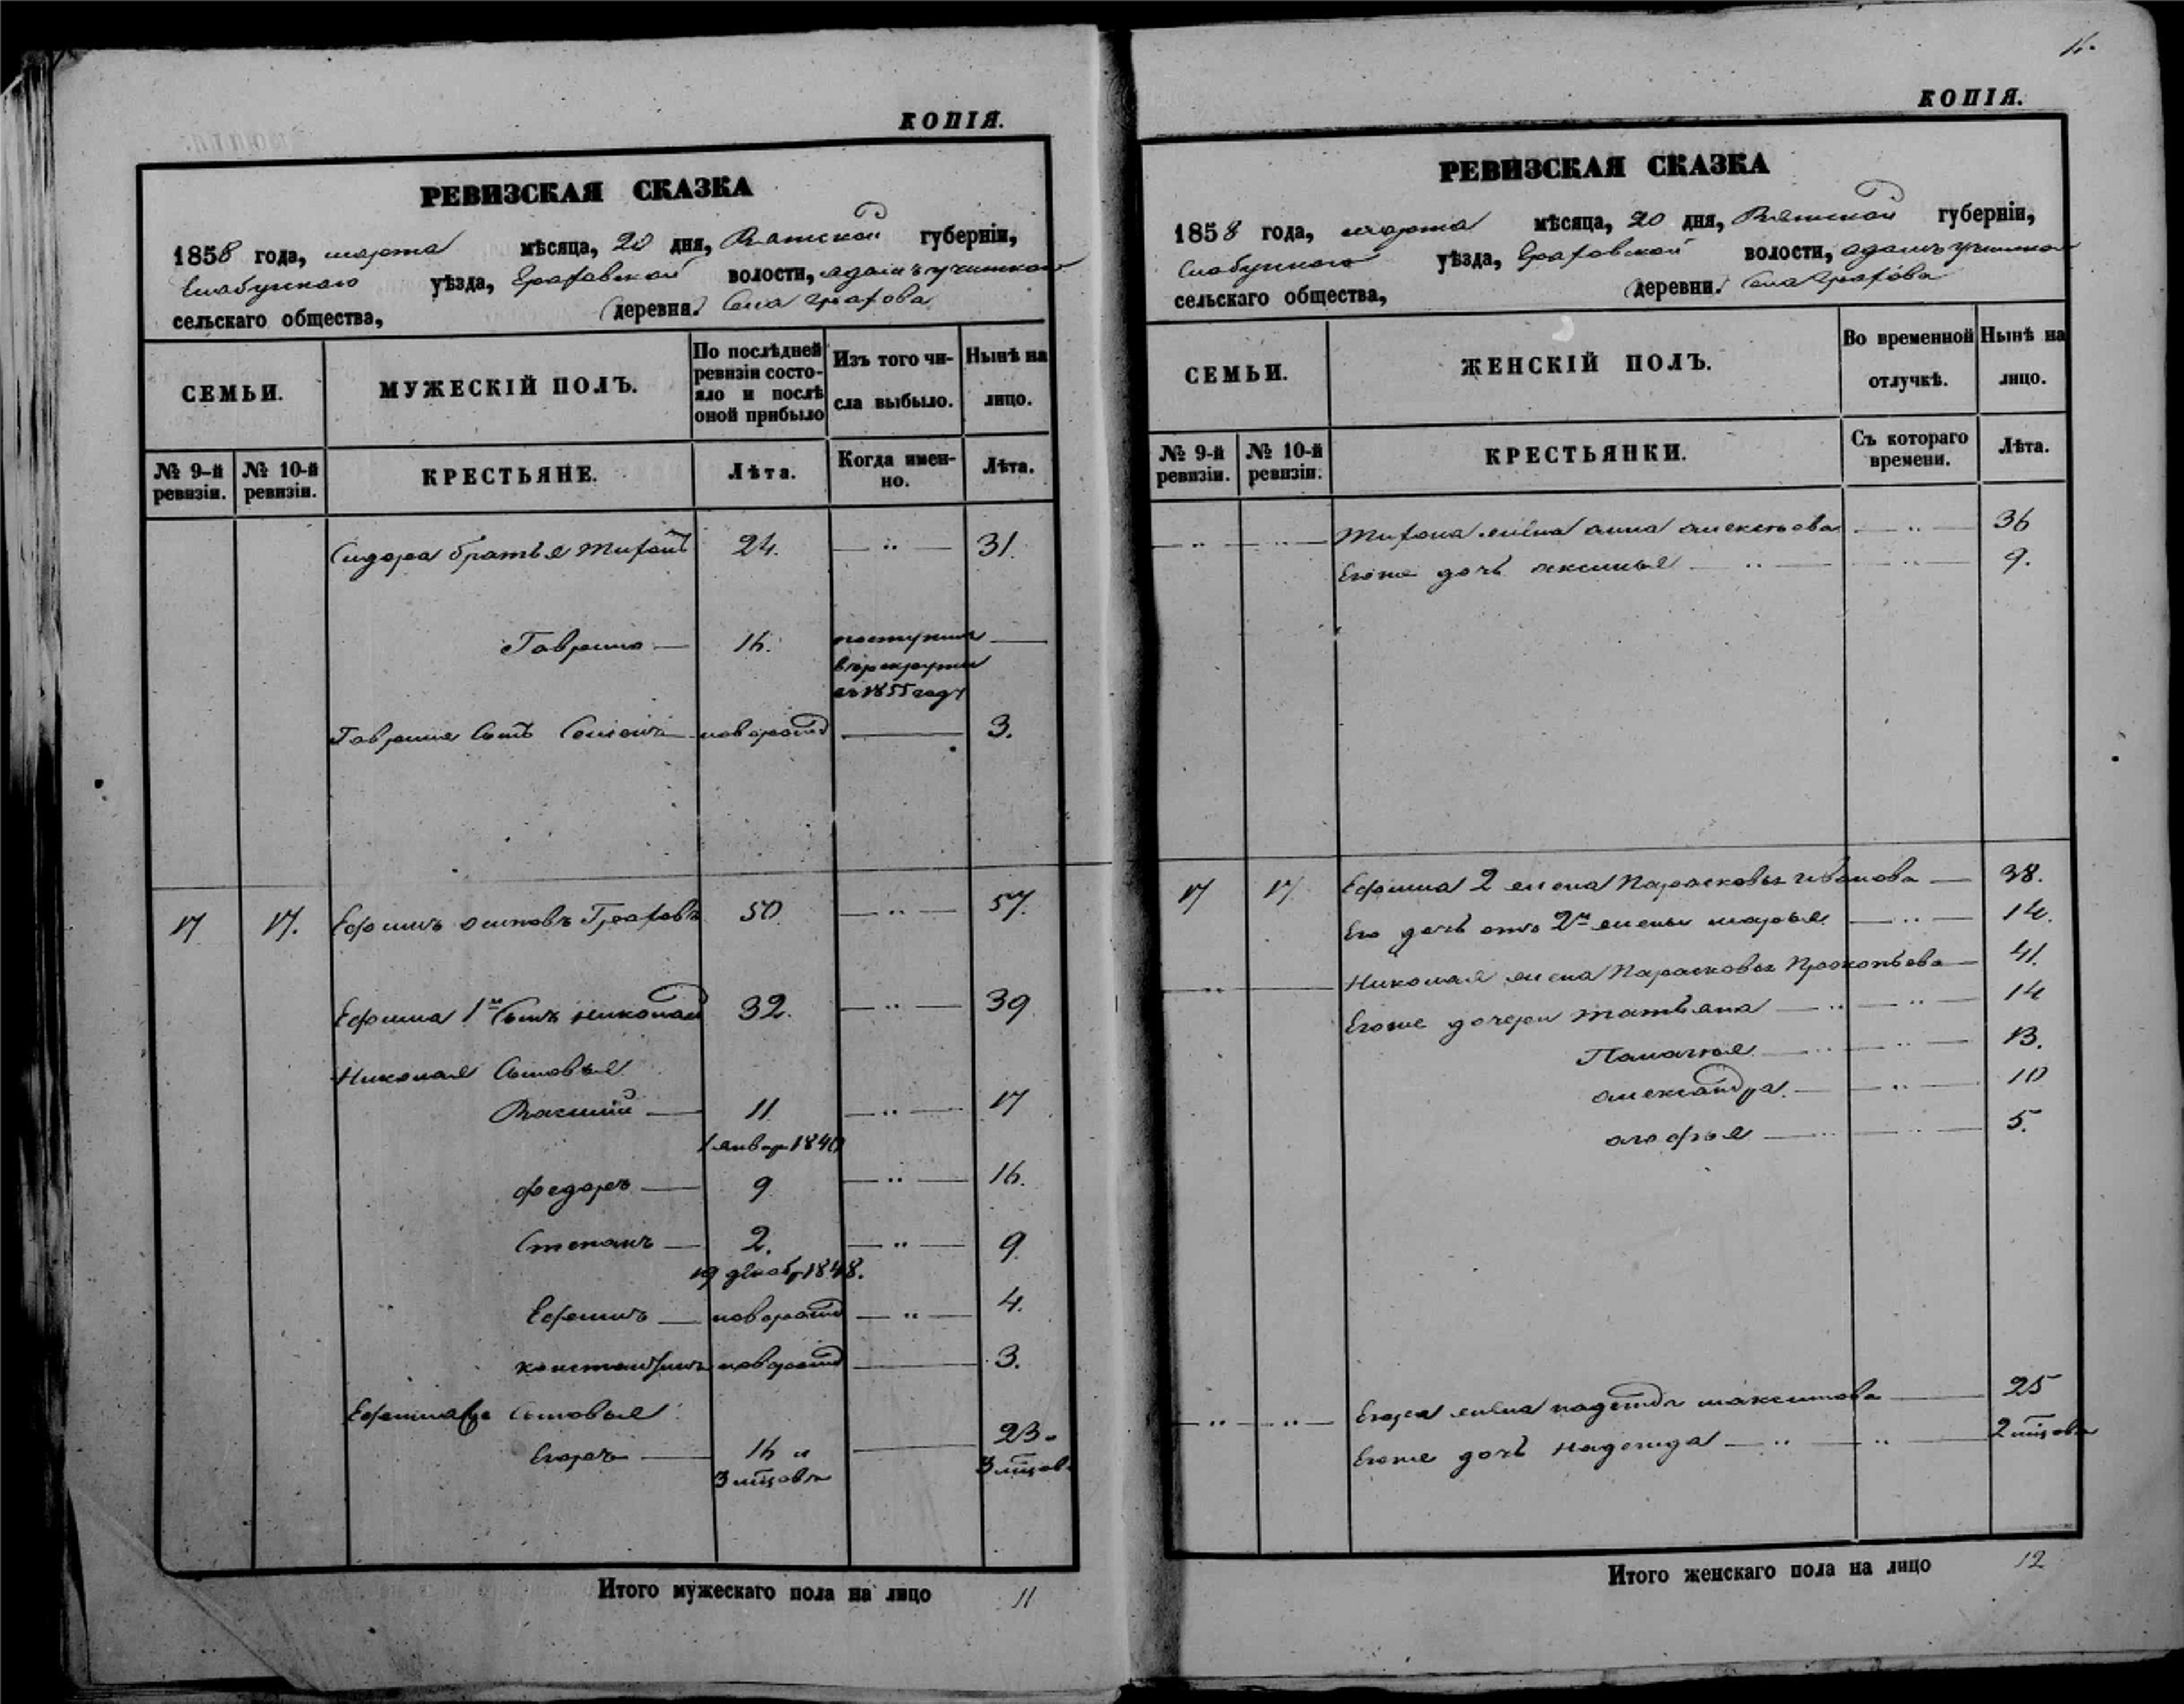 КОПІЯ.
РЕВИЗСКАЯ СКАЗКА
1858 года, марта мѣсяца, 20 дня, Вятской губерніи,
Елабужскаго уѣзда, Граховской волости,
сельскаго общества, (деревни) Села Грахова
СЕМЬИ.
МУЖЕСКІЙ ПОЛЪ.
По послѣдней ревизіи состояло и послѣ оной прибыло
Изъ того числа выбыло.
Нынѣ на лицо.
№ 9-й ревизіи.
№ 10-й ревизіи.
КРЕСТЬЯНЕ.
Лѣта.
Когда именно.
Лѣта.
Сидора братья Тифонъ 24. — " — 31.
Гаврило — 16. поступилъ —
въ рекруты
въ 1855 году
Гаврила сынъ новорожд — 3.
17 17. Ефимъ Осиповъ Граховъ 50 — " — 57.
Ефима 1й сынъ Николай 32. — " — 39
Николая сыновья
Василій — 11 — " — 17
1 январ 1840
Федоръ — 9 — " — 16.
Степанъ — 2. — " — 9.
19 декабр 1848.
Ефимъ — новорожд — " — 4.
Константинъ новорожд — 3.
Ефима сыновья
Егоръ — 16 и — 23 -
3 мѣсцовъ 3 мѣсцов
Итого мужескаго пола на лицо 11
КОПІЯ.
РЕВИЗСКАЯ СКАЗКА
1858 года, марта мѣсяца, 20 дня, Вятской губерніи,
Елабужскаго уѣзда, Граховской волости,
сельскаго общества, (деревни) Села Грахова
СЕМЬИ.
ЖЕНСКІЙ ПОЛЪ.
Во временной отлучкѣ.
Нынѣ на лицо.
№ 9-й ревизіи.
№ 10-й ревизіи.
КРЕСТЬЯНКИ.
Съ котораго времени.
Лѣта.
— " — " — Тифона жена Анна Алексѣева — " — 36
Егоже дочь Аксинья — " — " — 9.
17 17. Ефима 2 жена Парасковья Иванова — 38.
Его дочь отъ 2й жены Марья — " — 14.
— " — Николая жена Парасковья Прокопьева — 41.
Егоже дочери Татьяна — " — " — 14
Палагея — " — " — 13.
Александра — " — 10
— " — " — 5.
— " — " — Егора жена Надежда Максимова — 25
Егоже дочь Надежда — " — " — 2 мѣсцовъ
Итого женскаго пола на лицо 12